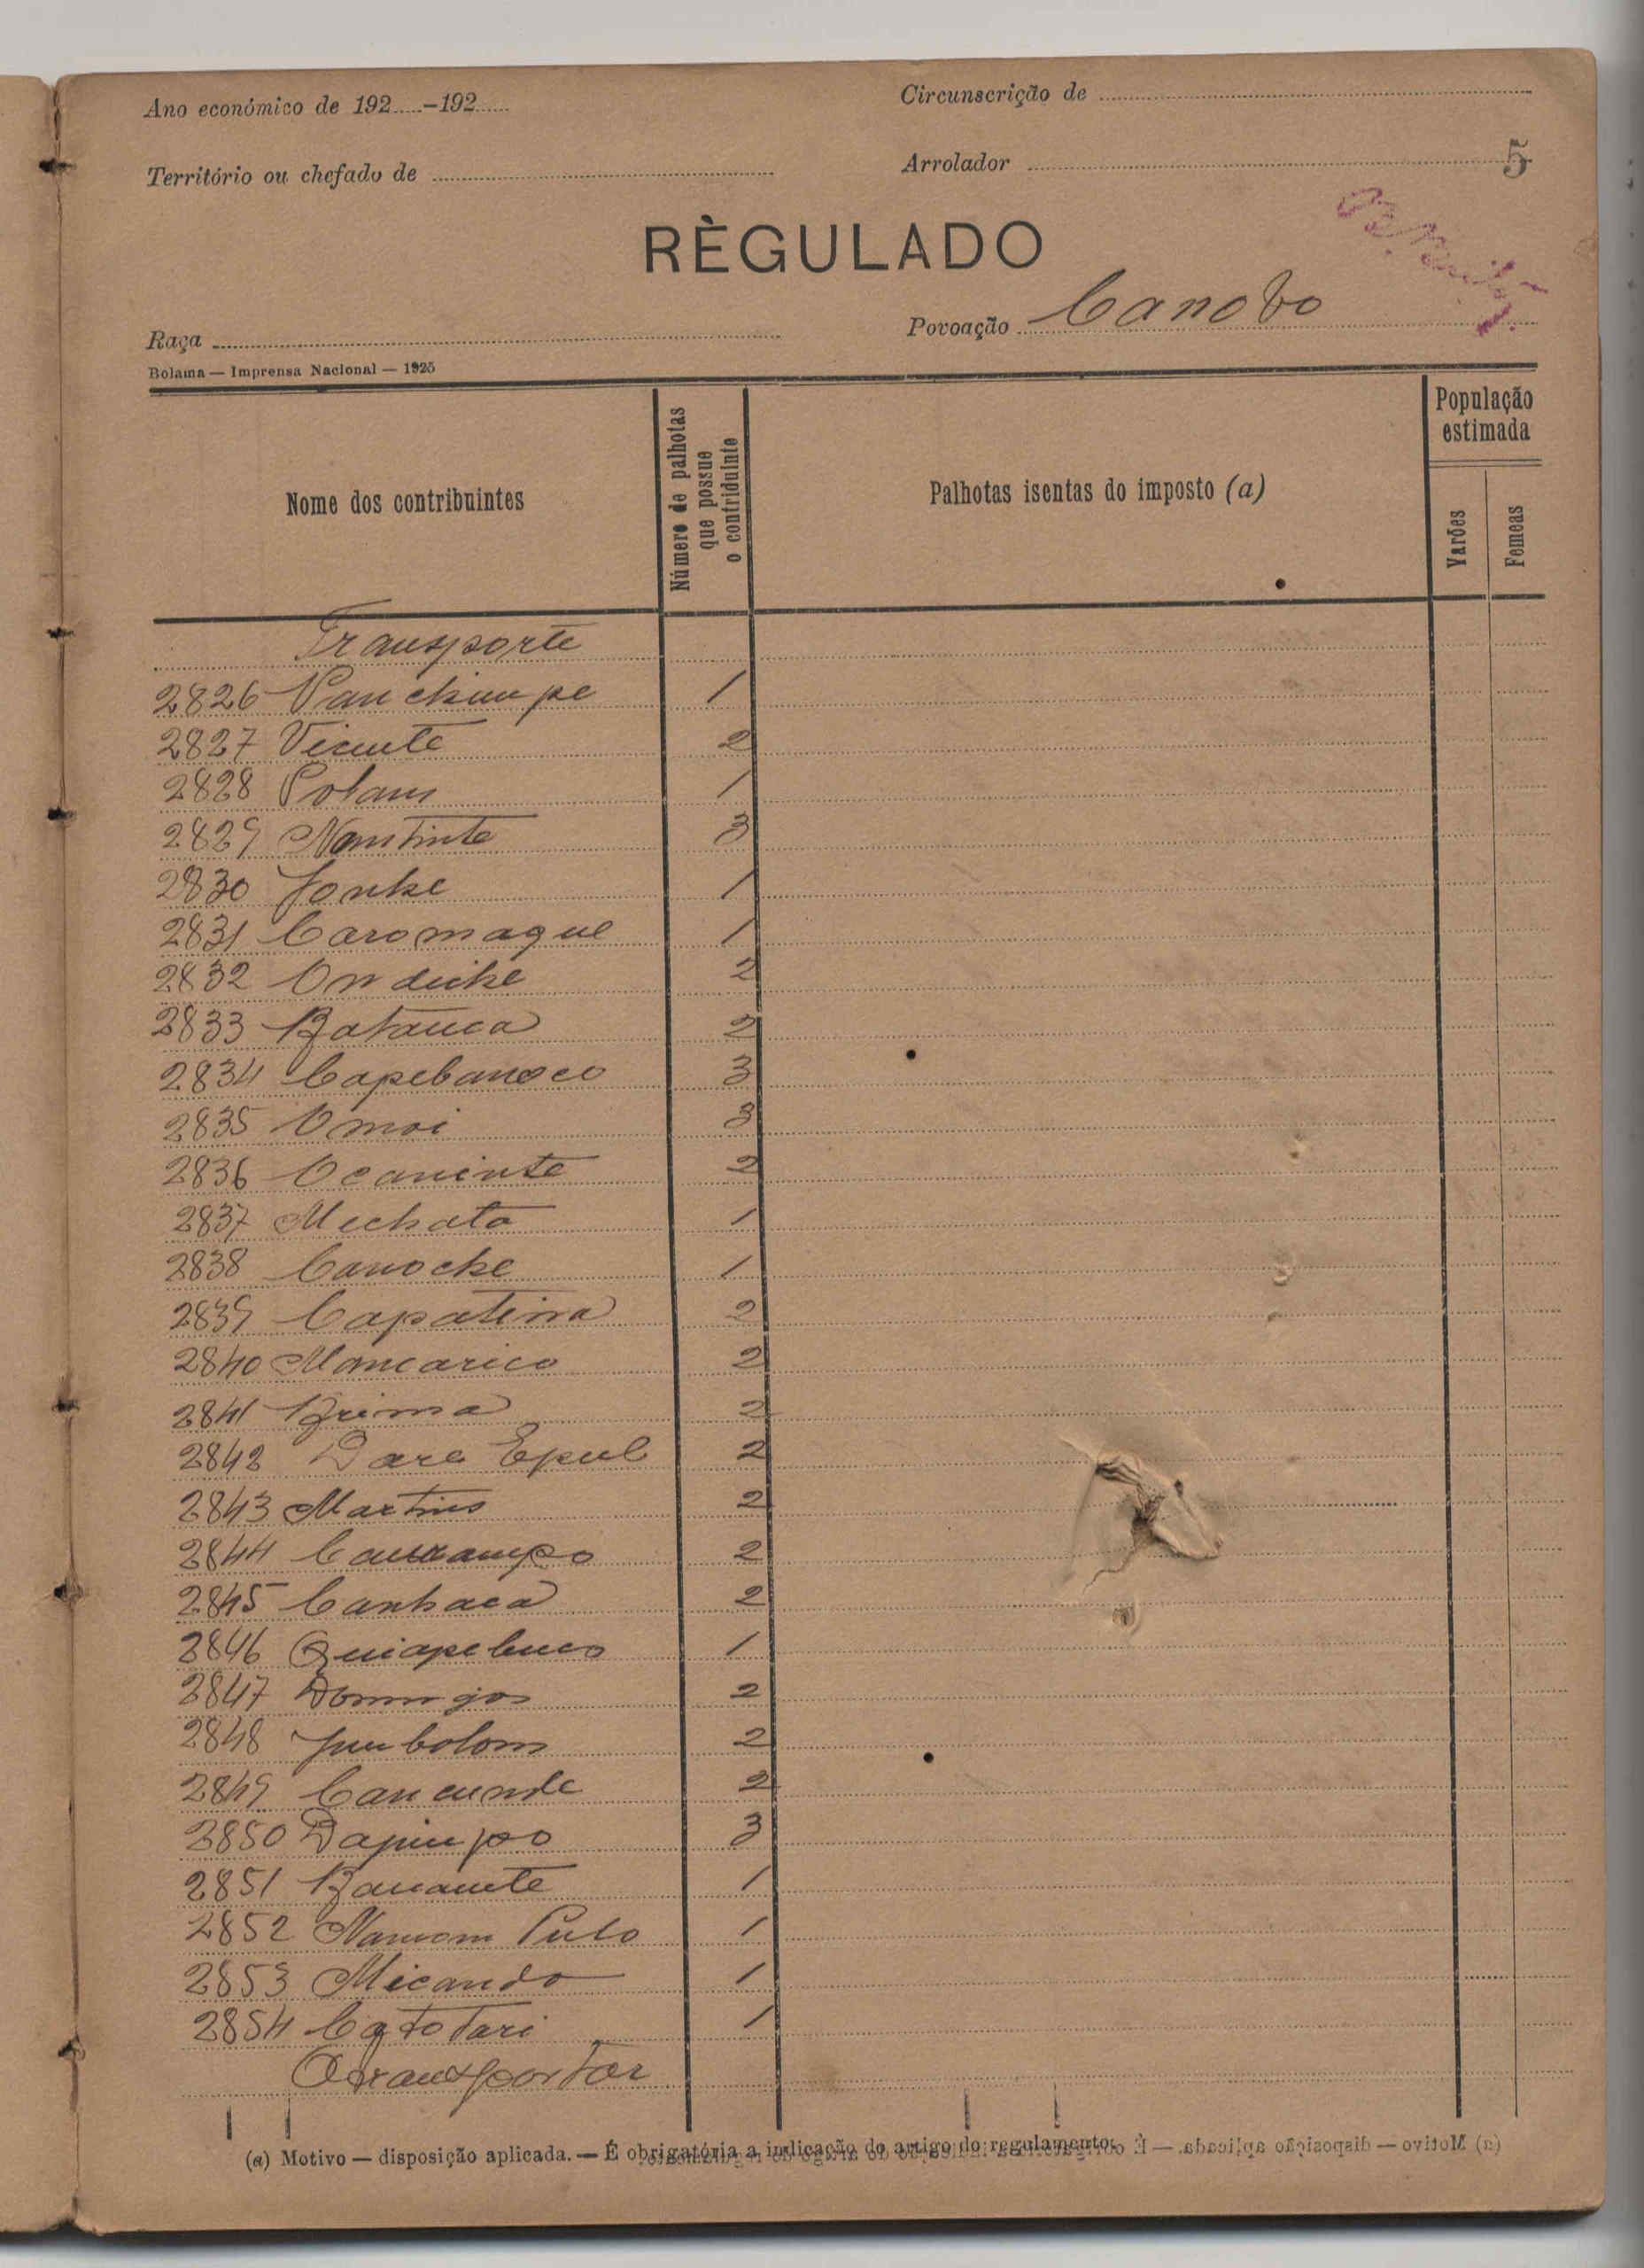 Ano económico de 192.....-192.....
Circunscrição de
Território ou chefado de
Arrolador
5
RÈGULADO
Raça
Povoação Canobo
Bolama — Imprensa Nacional — 1925
Nome dos contribuintes
Número de palhotas que possue o contriduinte
Palhotas isentas do imposto (a)
População estimada
Varões
Femeas
Transporte
2826 1
2827 Vicente 2
2828 Polam 1
2829 Nomtinte 3
2830 Jonke 1
2831 Caromaque 1
2832 Ondeike 2
2833 Batauca 2
2834 3
2835 Omoi 3
2836 Ocaninte 2
2837 Mechato 1
2838 Canoche 1
2839 Capatina 2
2840 Mancarico 2
2841 Brima 2
2842 Dare Epul 2
2843 Martins 2
2844 2
2845 Canhaca 2
2846 1
2847 Domingos 2
2848 2
2849 2
2850 3
2851 Bananté 1
2852 1
2853 Micando 1
2854 1
A transportar
(a) Motivo — disposição aplicada. — É obrigatória a indicação do artigo do regulamento.